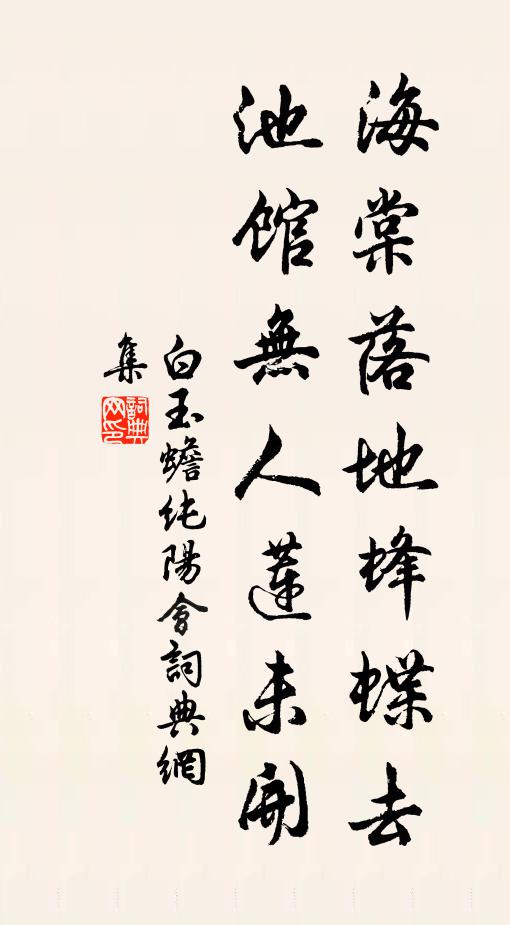 海棠落地蜂蝶去
池館無人蓮未開
白玉蟾純陽會詞典網
集
詞典網印